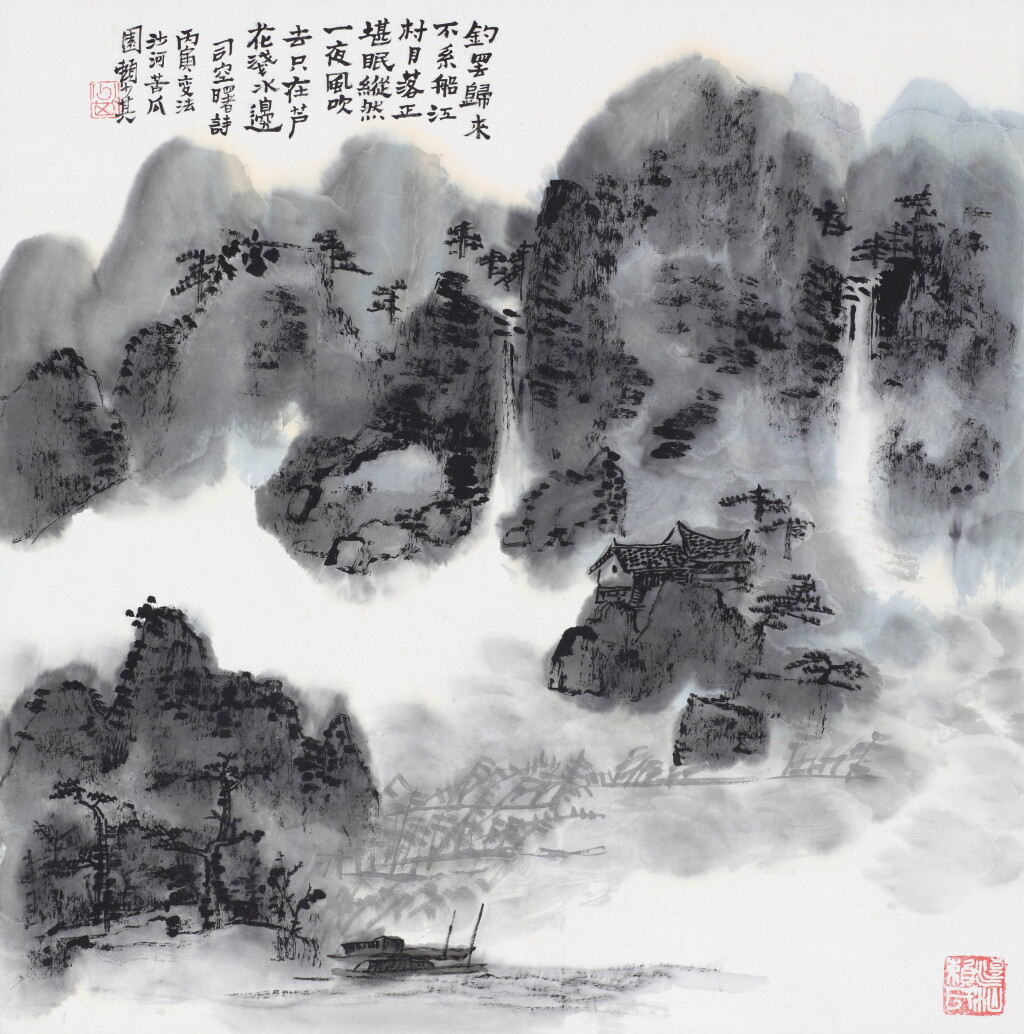 釣罢歸来
不系船江
村月落正
堪眠縱然
一夜風吹
去只在芦
花淺水邊
司空曙詩
丙寅变法
沙河苦瓜
園賴少其